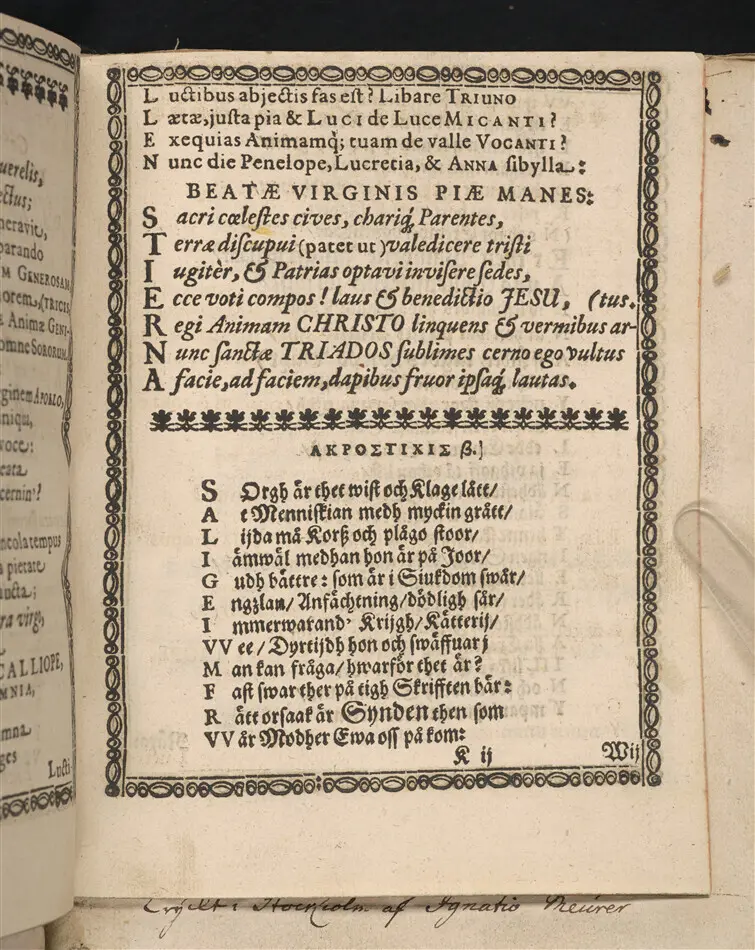 uerelis,
ectus;
neravit,
parando
M GENEROSAM
orem, (TRICIS
Animæ GENI-
omne SORORUM
rginem APOLLO,
niqua,
voce:
eata
cernin'?
ncola tempus
a pietate
aucta;
ra virg,
CALLIOPE,
MNIA,
mna
ges
Lucti-
L uctibus abjectis fas est? Libare TRIUNO
L ætæ, justa pia & LUCI de Luce MICANTI?
E xequias Animamq; tuam de valle VOCANTI?
N unc die Penelope, Lucretia, & ANNA sibylla:
BEATÆ VIRGINIS PIÆ MANES:
S acri cœlestes cives, chariq; Parentes,
T erræ discupui (patet ut) valedicere tristi
I ugitèr, & Patrias optavi invisere sedes,
E cce voti compos! laus & benedictio JESU, (tus.
R egi Animam CHRISTO linquens & vermibus ar-
N unc sanctæ TRIADOS sublimes cerno ego vultus
A facie, ad faciem, dapibus fruor ipsaq; lautas.
ΑΚΡΟΣΤΙΧΙΣ β.]
S Orgh är thet wist och Klage lått/
A t Menniskian medh myckin grått/
L ijda må Korß och plågo stoor/
I ämwäl medhan hon är på Joor/
G udh bättre: som är i Siukdom swår/
E ngzlan/ Anfächtning/ dödligh sår/
I mmerwarand' Krijgh/ Kätterij/
VV ee/ Dyrtijdh hon och swäffuar j
M an kan fråga/ hwarför thet är?
F ast swar ther på tigh Skrifften bär:
R ätt orsaak är Synden then som
VV år Modher Ewa oss på kom:
K ij
Wij
Tryckt i Stockholm af Ignatio Meurer